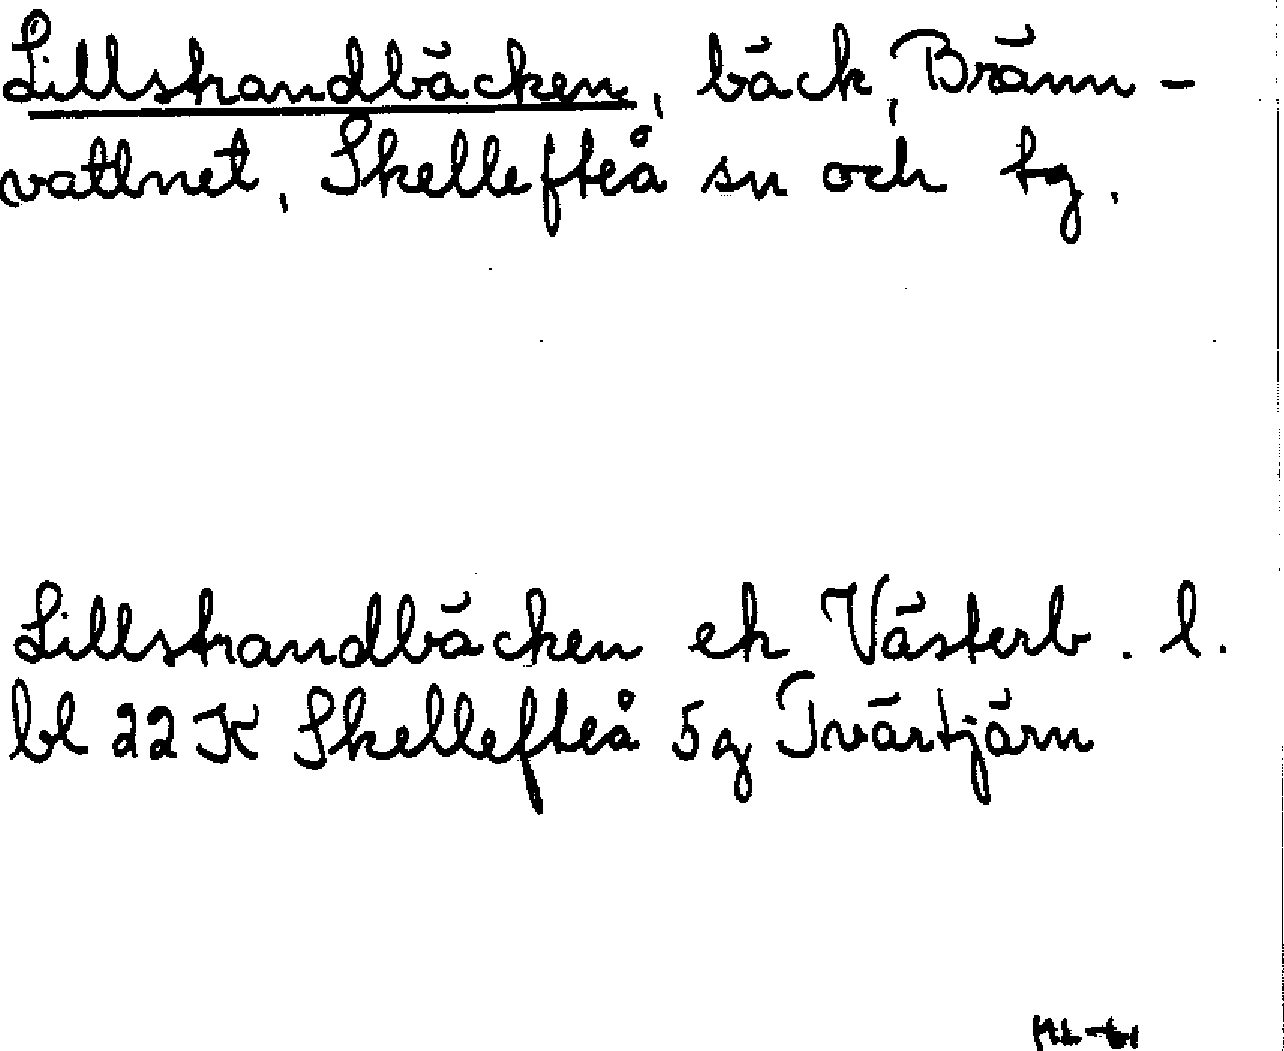 Lillstrandbäcken, bäck, Bränn-
vattnet, Skellefteå sn och tg.
Lillstrandbäcken ek Västerb. l.
bl 22 K Skellefteå 5g Tvärtjärn